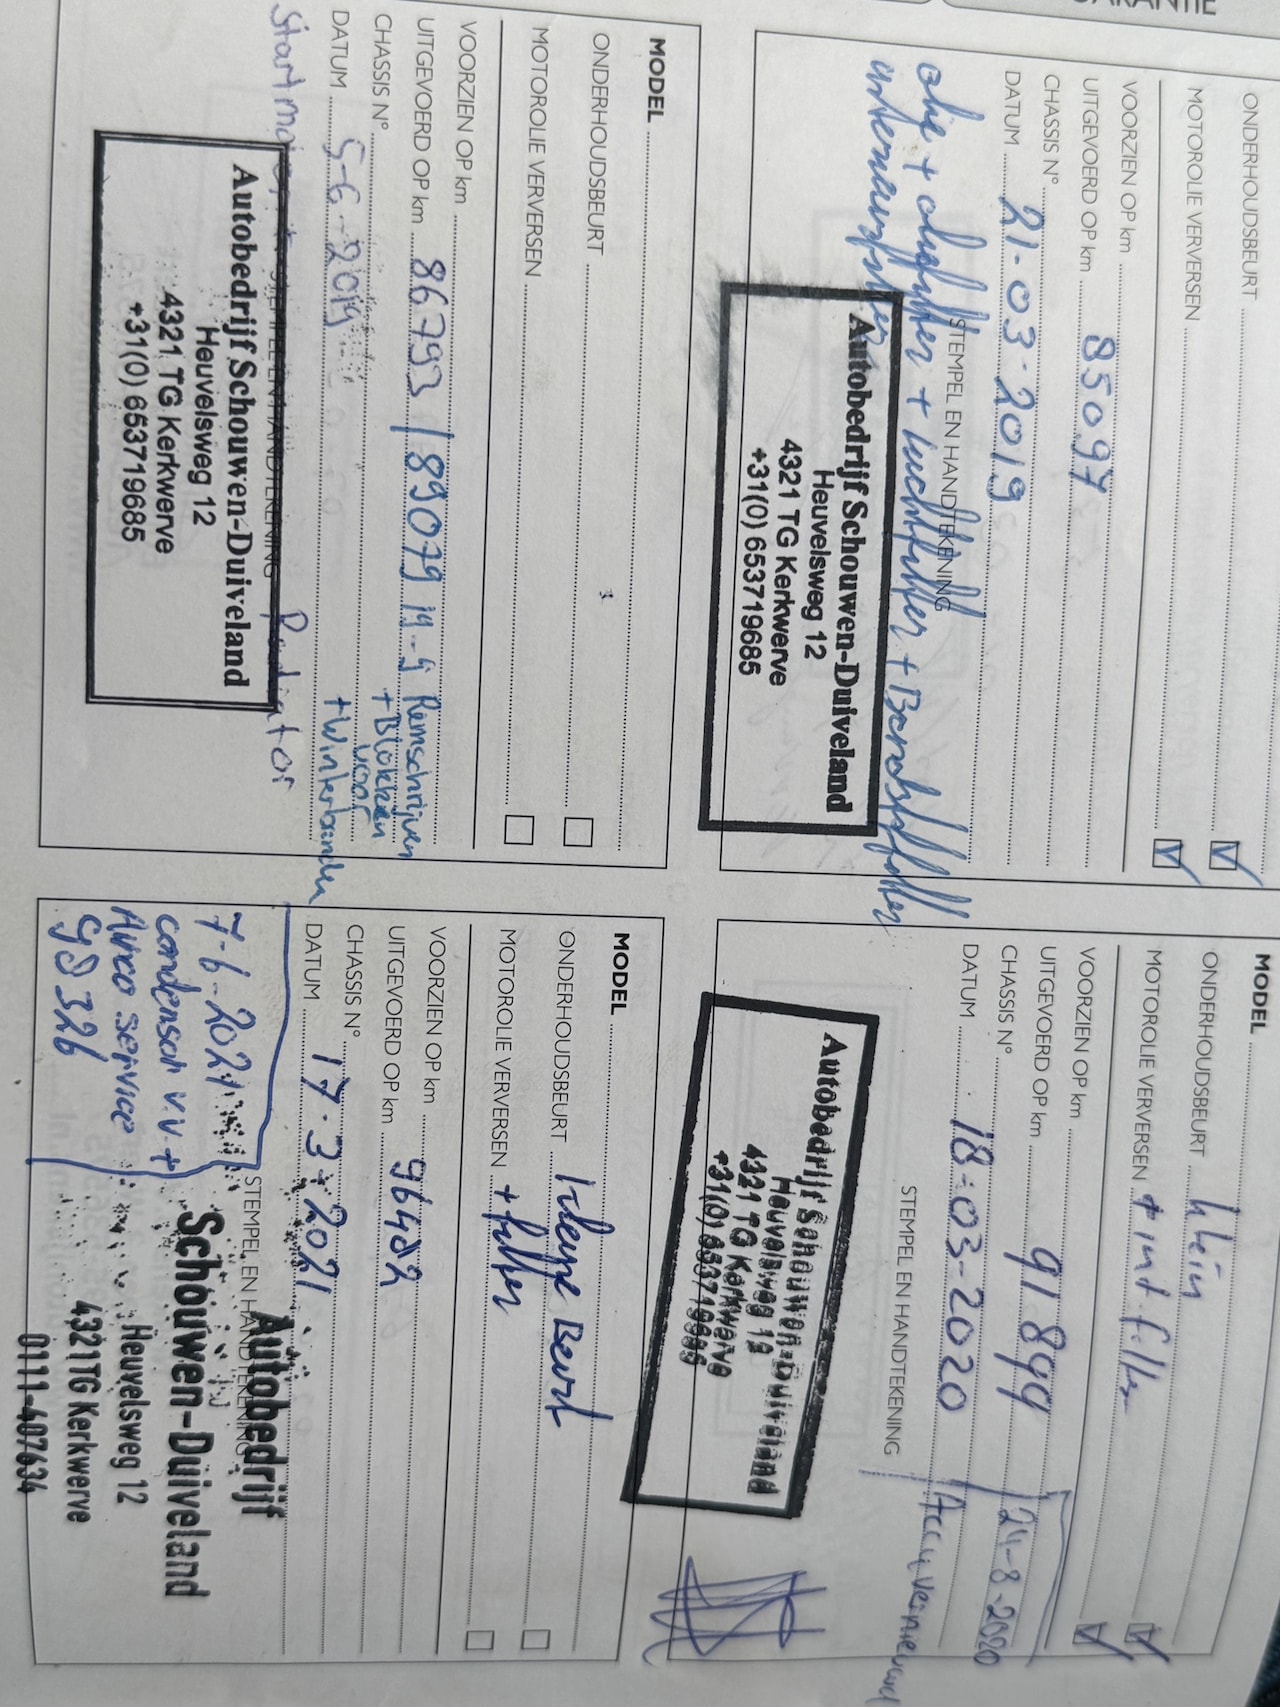 GARANTIE
ONDERHOUDSBEURT
MOTOROLIE VERVERSEN
VOORZIEN OP km
UITGEVOERD OP km 85097
CHASSIS N°
DATUM 21-03-2019
STEMPEL EN HANDTEKENING
olie + oliefilter + luchtfilter + Brandstoffilter
interieurfilter
Autobedrijf Schouwen-Duiveland
Heuvelsweg 12
4321 TG Kerkwerve
+31(0) 653719685
MODEL
ONDERHOUDSBEURT klein
MOTOROLIE VERVERSEN + int filter
VOORZIEN OP km
UITGEVOERD OP km 91899
CHASSIS N° 24-8-2020
DATUM 18-03-2020 Accu vernieuwd
STEMPEL EN HANDTEKENING
Autobedrijf Schouwen-Duiveland
Heuvelsweg 12
4321 TG Kerkwerve
+31(0) 653719685
MODEL
ONDERHOUDSBEURT
MOTOROLIE VERVERSEN
VOORZIEN OP km
UITGEVOERD OP km 86793 / 89079 19-9 Remschrijven
CHASSIS N° + Blokken
voor
DATUM 5-6-2019 + Winterbanden
STEMPEL EN HANDTEKENING
Radiator
Autobedrijf Schouwen-Duiveland
Heuvelsweg 12
4321 TG Kerkwerve
+31(0) 653719685
MODEL
ONDERHOUDSBEURT Kleine Beurt
MOTOROLIE VERVERSEN + filter
VOORZIEN OP km
UITGEVOERD OP km 96482
CHASSIS N°
DATUM 17-3-2021
STEMPEL EN HANDTEKENING
7-6-2021
condensor v.v +
Airco service
98326
Autobedrijf
Schouwen-Duiveland
Heuvelsweg 12
4321TG Kerkwerve
0111-407634